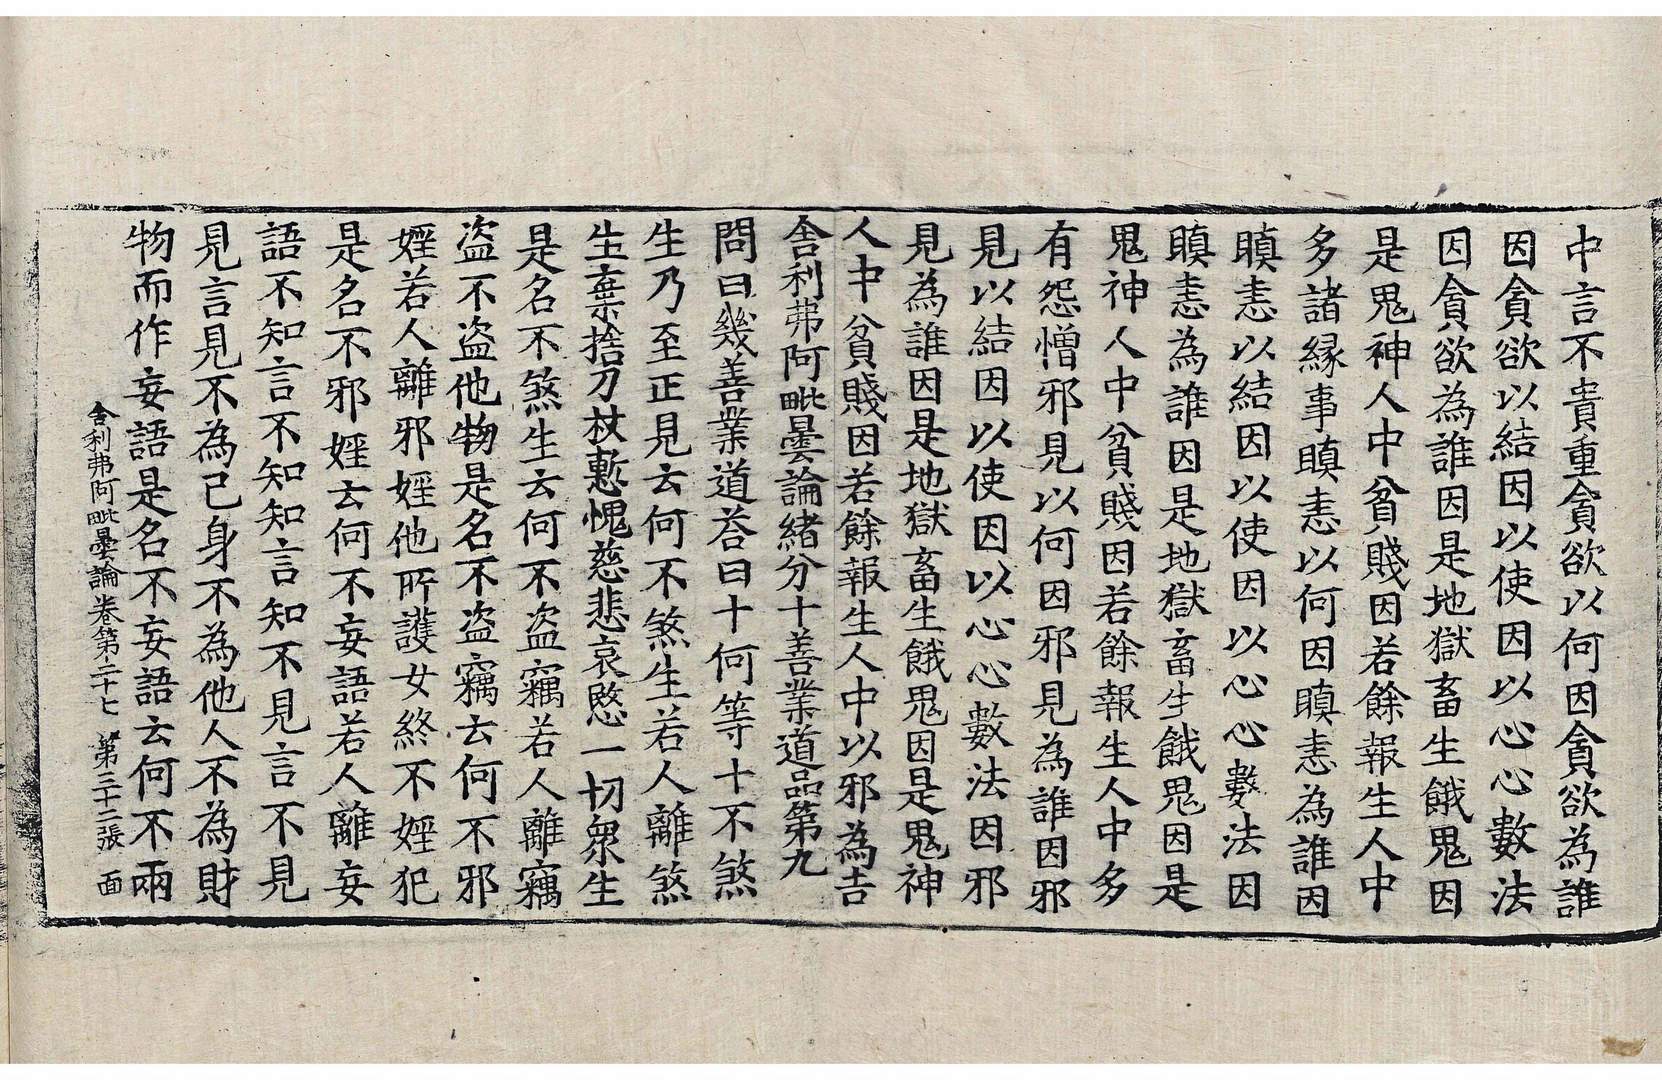 中言不貴重貪欲以何因貪欲為誰
因貪欲以結因以使因以心心數法
因貪欲為誰因是地獄畜生餓鬼因
是鬼神人中貧賤因若餘報生人中
多諸緣事瞋恚以何因瞋恚為誰因
瞋恚以結因以使因以心心數法因
瞋恚為誰因是地獄畜生餓鬼因是
鬼神人中貧賤因若餘報生人中多
有怨憎邪見以何因邪見為誰因邪
見以結因以使因以心心數法因邪
見為誰因是地獄畜生餓鬼因是鬼神
人中貧賤因若餘報生人中以邪為吉
舍利弗阿毗曇論緒分十善業道品第九
問曰幾善業道荅曰十何等十不煞
生乃至正見云何不煞生若人離煞
生棄捨刀杖慙愧慈悲哀愍一切衆生
是名不煞生云何不盜竊若人離竊
盜不盜他物是名不盜竊云何不邪
婬若人離邪婬他所護女終不婬犯
是名不邪婬云何不妄語若人離妄
語不知言不知知言知不見言不見
見言見不為己身不為他人不為財
物而作妄語是名不妄語云何不兩
舍利弗阿毗曇論卷第二十七 第三十二張 面